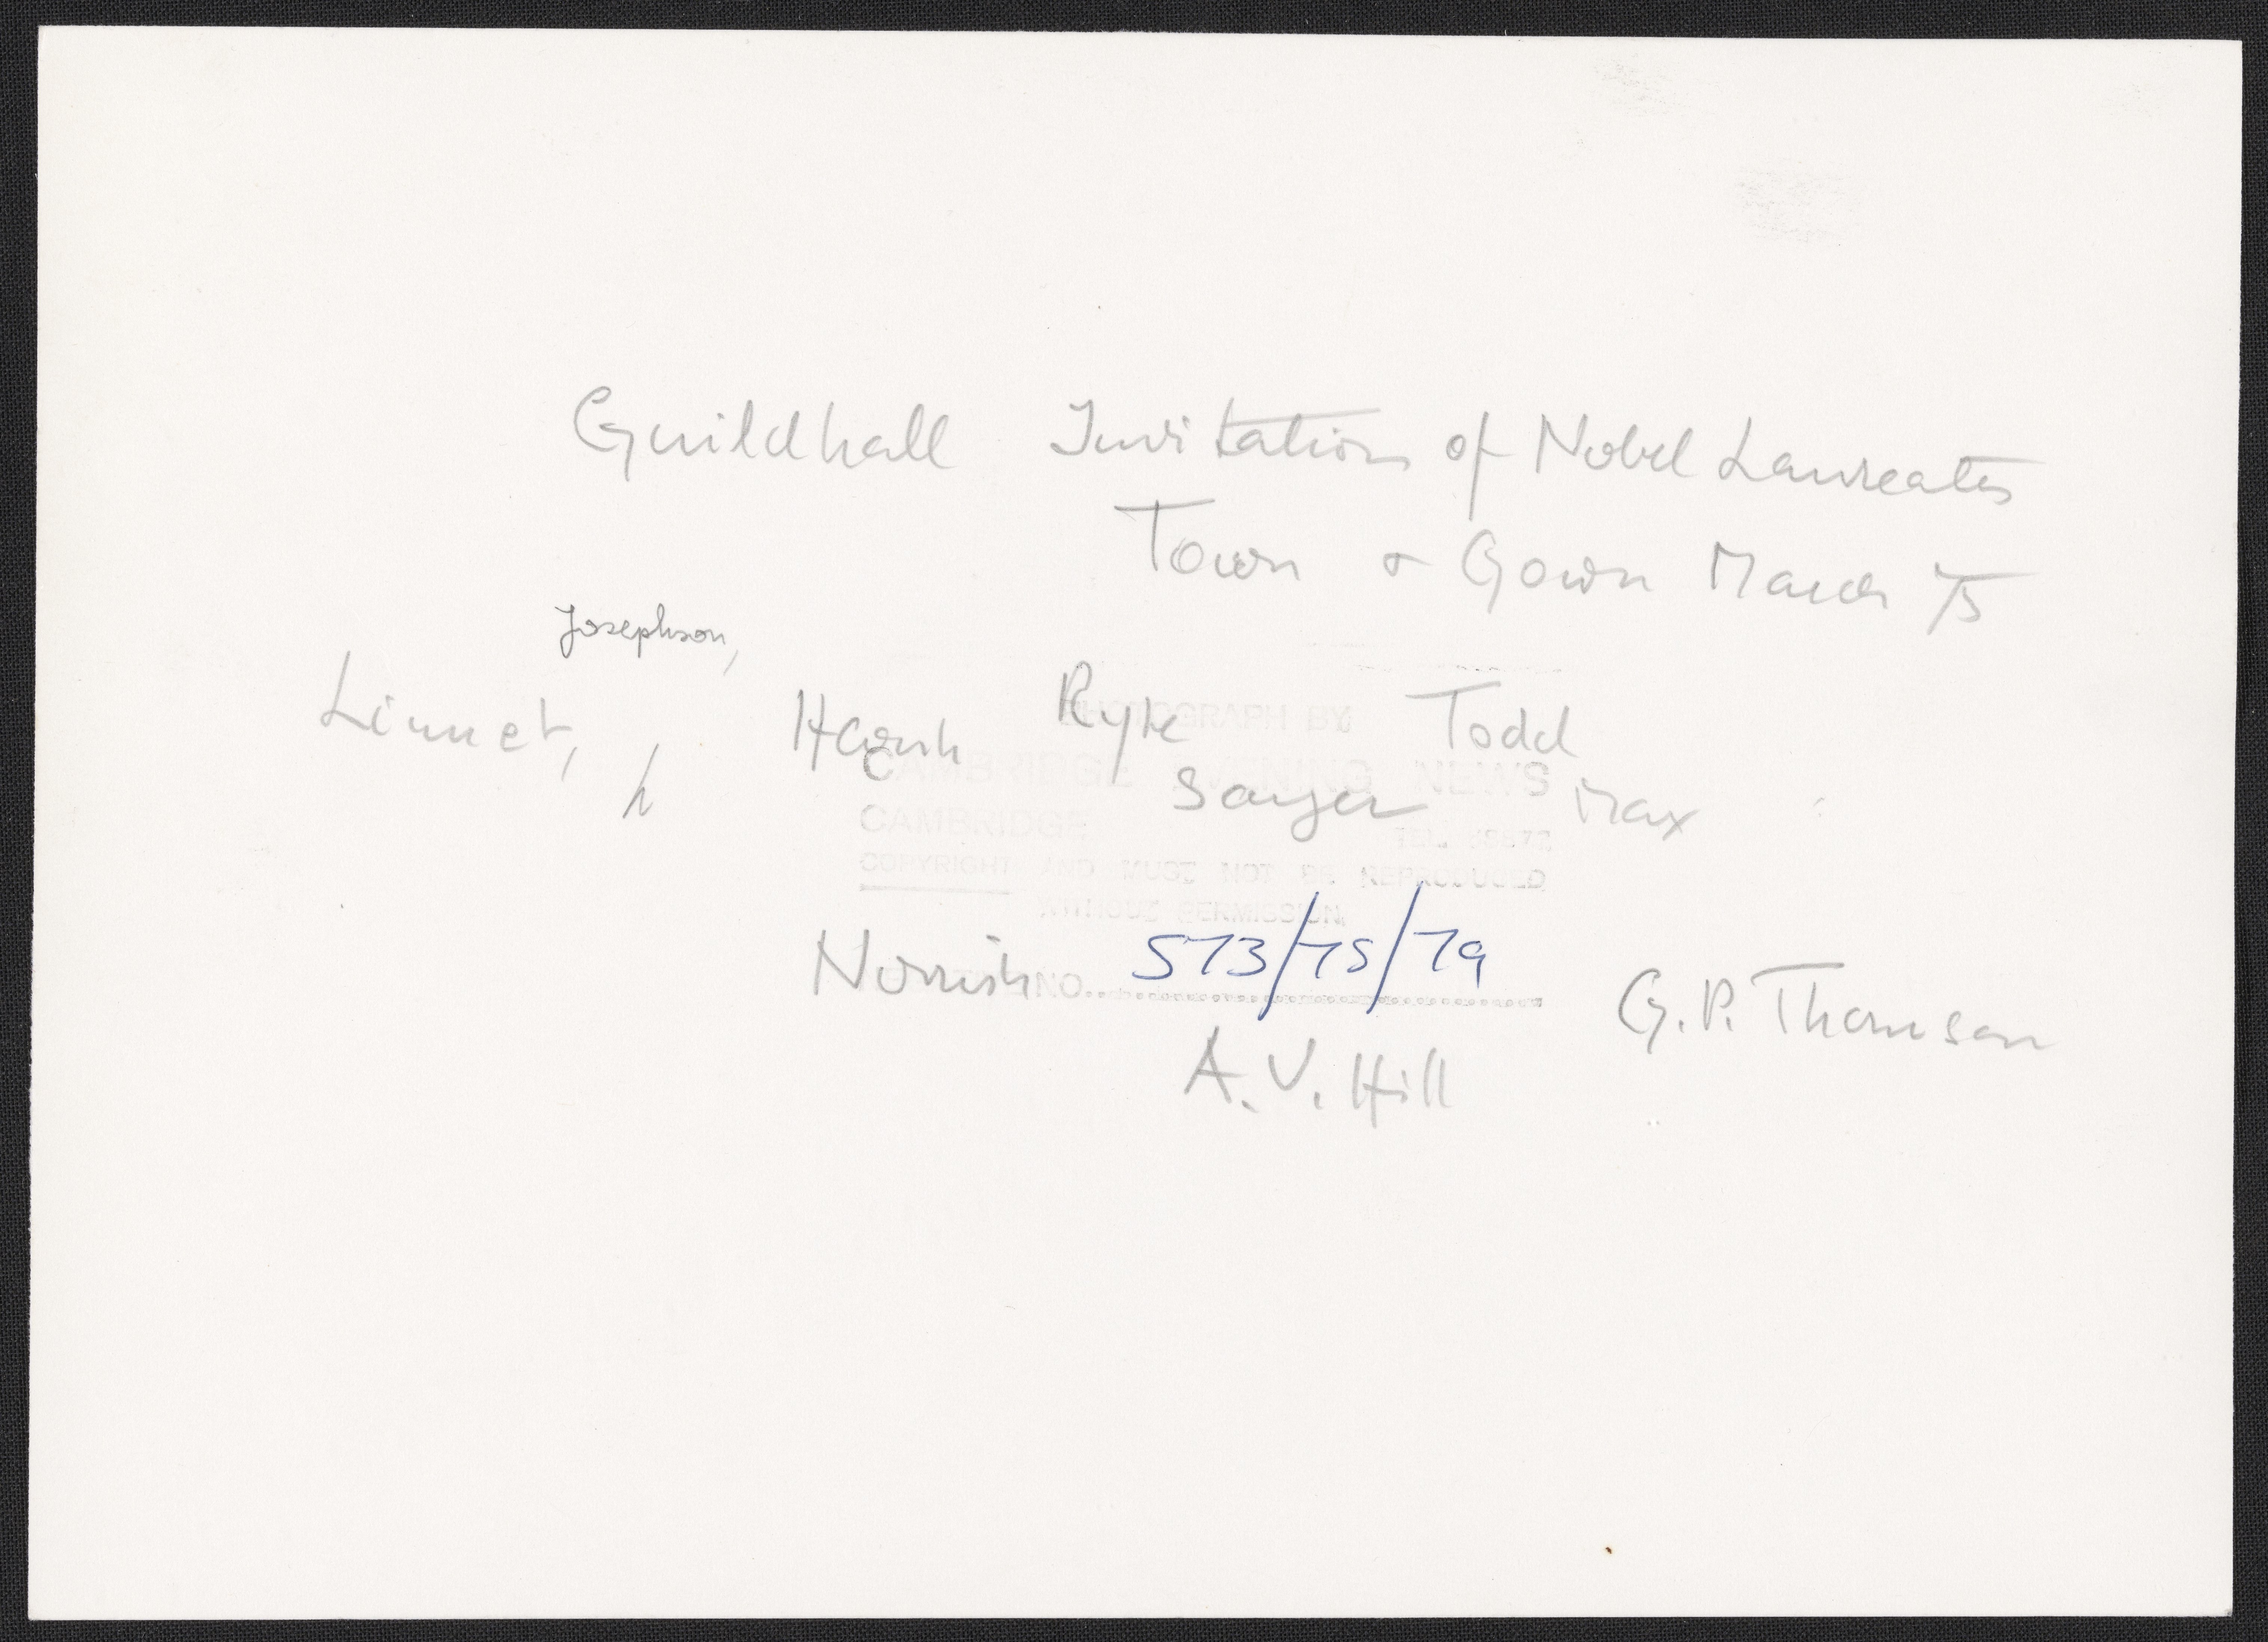 Guildhall Invitation of Nobel Laureates
Town & Gown March 75
Josephson,
Linnet, Ryle Todd
Sanger Max
PHOTOGRAPH BY
CAMBRIDGE EVENING NEWS
CAMBRIDGE
COPYRIGHT AND MUST NOT BE REPRODUCED
WITHOUT PERMISSION.
Norrish NO. 573/75/79
G.P. Thomson
A.V. Hill